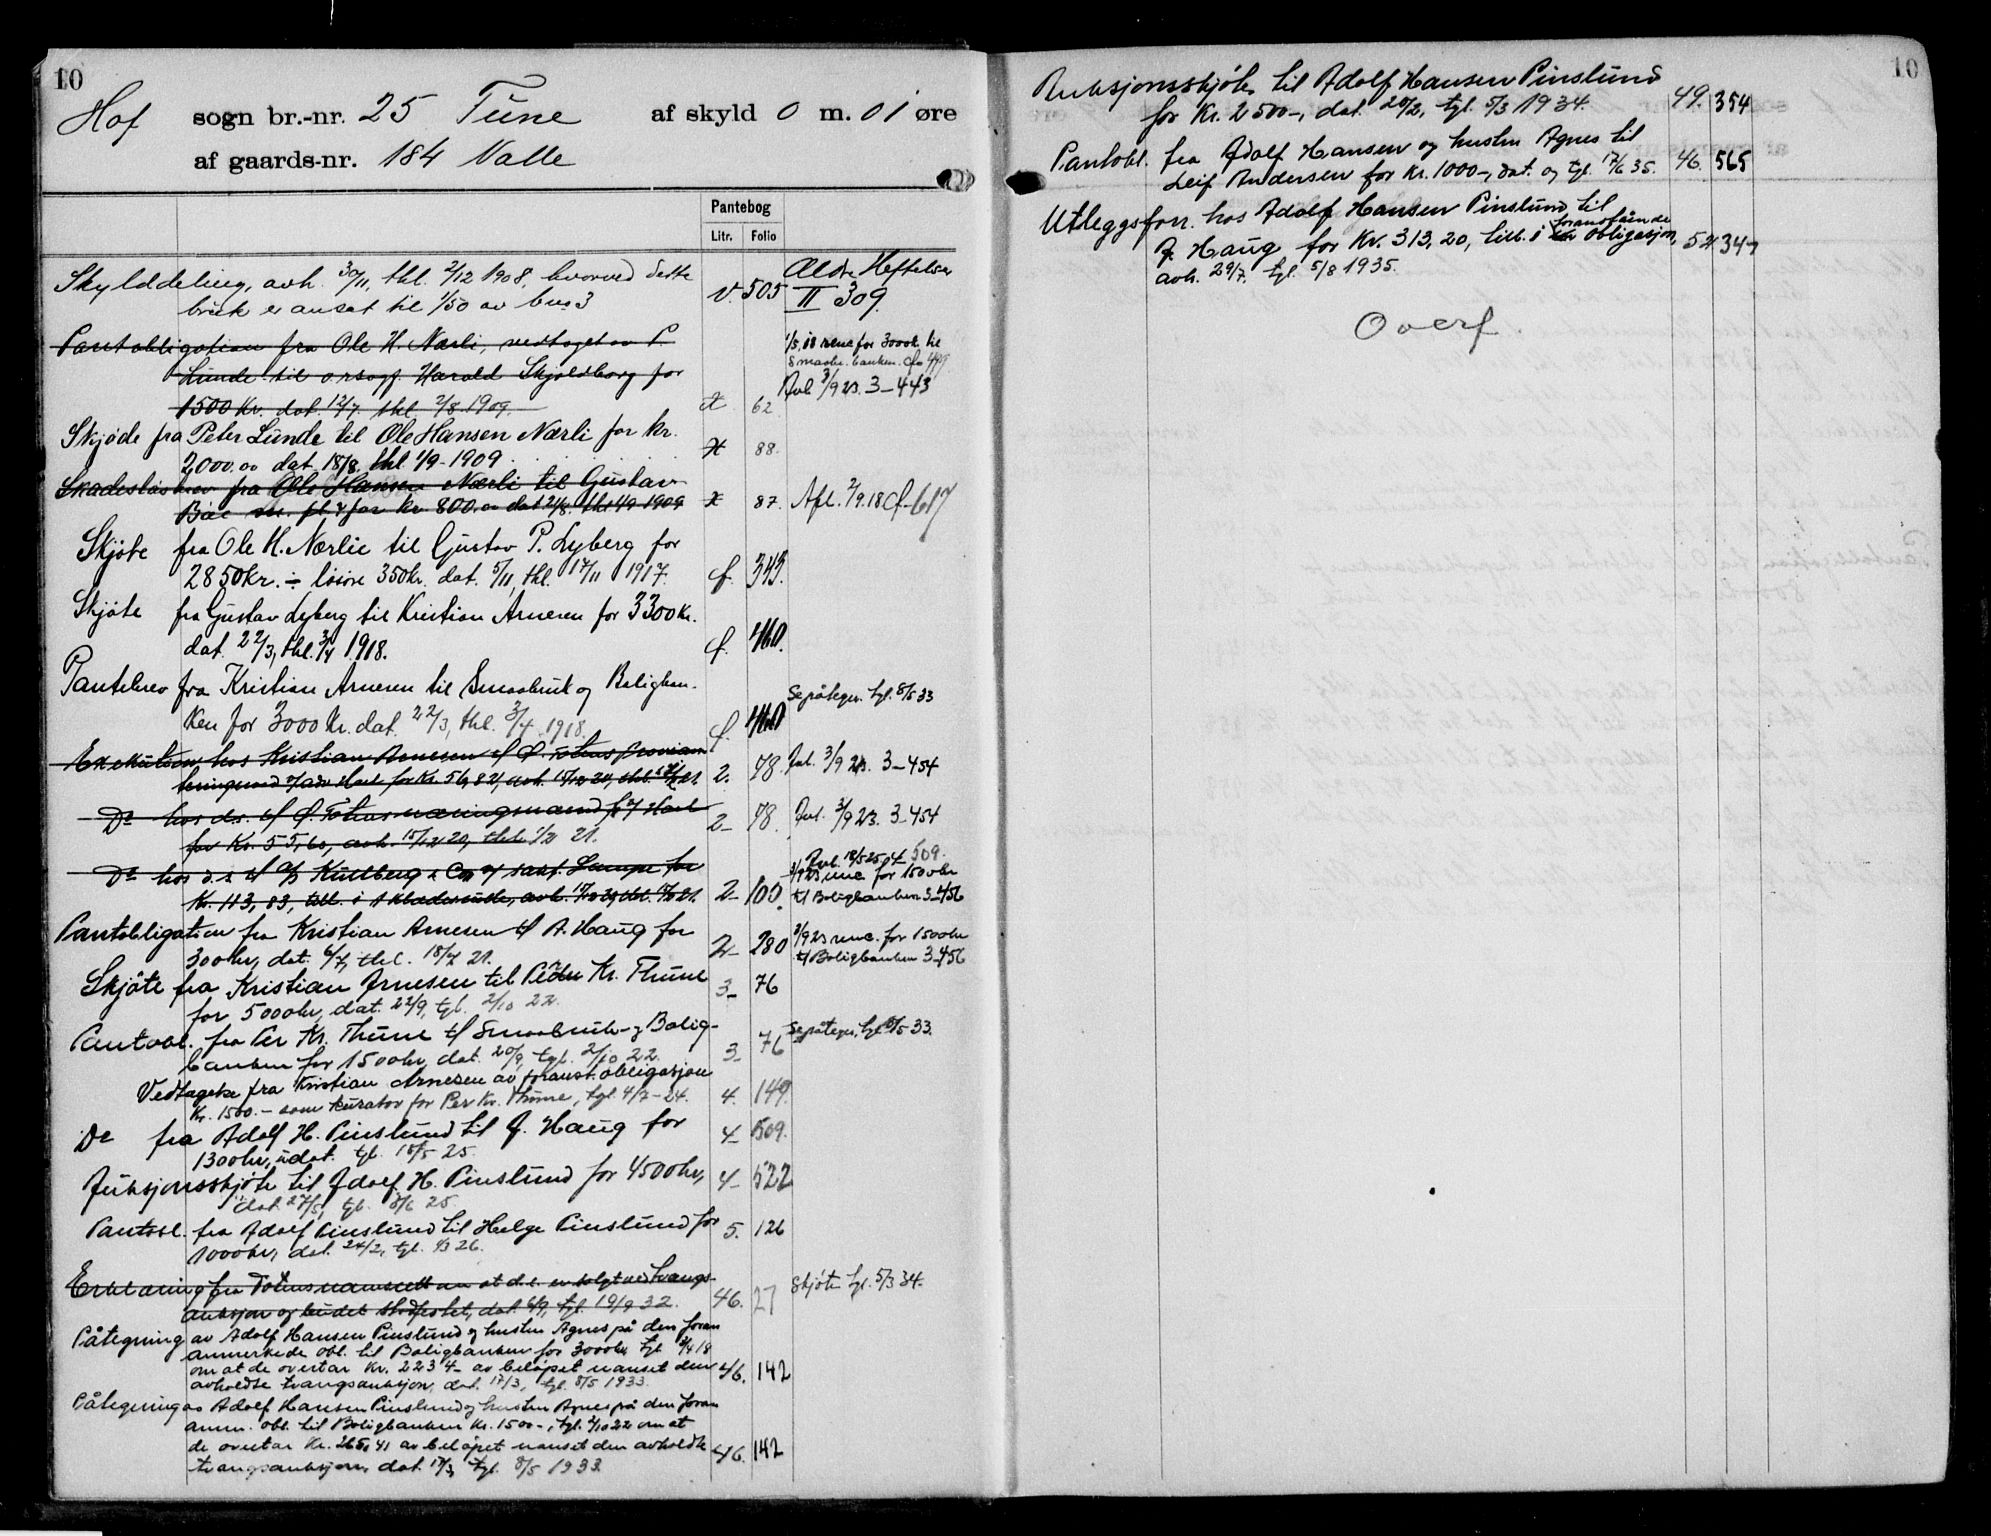 10
Hof sogn br.-nr. 25 Tune af skyld 0 m. 01 øre
af gaards-nr. 184 Valle
Pantebog
Litr. Folio
Skylddeling, avh. 30/11, thl. 2/12 1908, hvorved dette V. 505 Ældre Heftelser
bruk er ansat til 1/50 av bno 3 II 309.
Pantobligation fra Ole H. Nærli, vedtaget av P. 1/5.18 vene for 3000k. til
Lunde til o.rsagf. Harald Skjoldborg for Smaabr. banken.
1500 Kr. dat. 12/7 thl. 2/8 1909. 62 Avl. 3/9 23. 3-443
Skjøde fra Peter Lunde til Ole Hansen Nærli for kr.
2000.00 dat 18/8. thl 1/9-1909 88.
Skadesløsbrev fra Ole Hansen Nærli til Gustav
Bæe for kr. 800.00 dat 21/8. thl 1/9 1909 87. Afl. 2/9.18 f-617
Skjøte fra Ole H. Nærlie til Gustav P. Lyberg for
2850 kr. ÷ løsøre 350 kr. dat. 5/11, thl. 17/11 1917. f. 343.
Skjøte fra Gustav Lyberg til Kristian Arnesen for 3300 Kr.
dat. 22/3, thl. 3/4 1918. f. 460.
Pantebrev fra Kristian Arnesen til Smaabruk og Boligban- Se påtegn. tgl. 8/5 33
ken for 3000 Kr. dat. 22/3, thl. 3/4 1918. f. 460
Exekution hos Kristian Arnesen tf Ø. Totens provian-
teringsraad for Kr. 56,82, avh. 15/12 20, thl. 2. 78. Avl. 3/9 23. 3-454
Do hos ds. tf Ø. Totens næringsmænd
for Kr. 55,60, avh. 15/12 20, thl. 1/2 21. 2- 78. Avl. 3/9 23. 3-454
Avl. 18/5 25 4-509.
Do hos ds tf A/S Kullberg & Co v/ sakf. Lampe for 3/9 23 vene for 1500 kr
Kr. 113,83, till. i 2- 100. tf Boligbanken 3-456
Pantobligation fra Kristian Arnesen tf A. Haug for 3/9 23 vene. for 1500 kr
300 kr, dat. 6/4, thl. 18/4 21. 2- 280 tf Boligbanken 3-456
Skjøte fra Kristian Arnesen til Peder Kr. Thune
for 5000 kr, dat. 22/9, tgl. 2/10 22. 3- 76
Pantobl. fra Per Kr. Thune tf Smaabruk- og Bolig- Se påtegn. tgl. 8/5 33.
banken for 1500 kr, dat. 20/9, tgl. 2/10 22. 3- 76
Vedtagelse fra Kristian Arnesen av foranst. obligasjon
Kr. 1500.- som kurator for Per Kr. Thune, tgl. 4/7-24. 4. 149.
Do fra Adolf H. Pinslund til J. Haug for
1300 kr, udat. tgl. 18/5 25. 4- 509.
Auksjonsskjøte til Adolf H. Pinslund for 4500 kr,
dat. 27/5, tgl. 8/6 25 4- 522
Pantobl. fra Adolf Pinslund til Helge Pinslund for
1000 kr, dat. 24/2, tgl. 1/3 26. 5. 126
Erklæring fra Totens namsrett om at d.e. er solgt ved tvangs-
auksjon og budet stadfestet, dat. 6/9, tgl. 19/9 32. 46. 27 Skjøte tgl. 5/3 34.
Påtegning av Adolf Hansen Pinslund og hustru Agnes på den foran
anmerkede obl. til Boligbanken for 3000 kr, tgl. 3/4 18
om at de overtar Kr. 2234- av beløpet uanset den 46. 142
avholdte tvangsauksjon, dat. 17/3, tgl. 8/5 1933.
Påtegning av Adolf Hansen Pinslund og hustru Agnes på den foran
anm. obl. til Boligbanken Kr. 1500-, tgl. 2/10 22 om at
de overtar Kr. 265,41 av beløpet uanset den avholdte 46. 142
tvangsauksjon, dat. 17/3, tgl. 8/5 1933
10
Auksjonsskjøte til Adolf Hansen Pinslund
for Kr. 2500-, dat. 20/2, tgl. 5/3 1934. 49. 354
Pantobl. fra Adolf Hansen og hustru Agnes til
Leif Andersen for Kr. 1000-, dat. og tgl. 17/6 35. 46. 565
Utleggsforr. hos Adolf Hansen Pinslund til
J. Haug for Kr. 313,20, till. i foranstående obligasjon, 52 347
avh. 29/7. tgl. 5/8 1935.
Overf.